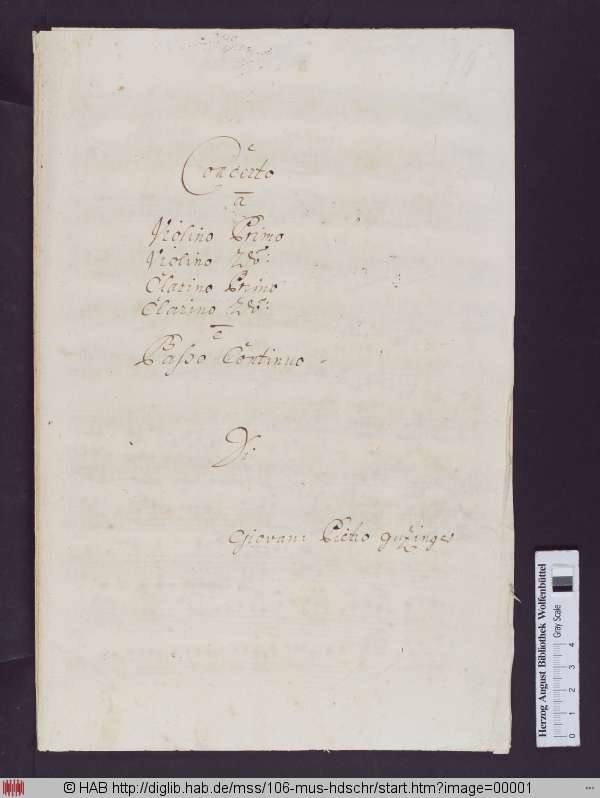 Concerto
a
Violino Primo
Violino 2do:
Clarino Primo
Clarino 2do:
e
Basso Continuo
Di
Giovani Pietro
Herzog August Bibliothek Wolfenbüttel
Gray Scale
0 1 2 3 4
© HAB http://diglib.hab.de/mss/106-mus-hdschr/start.htm?image=00001